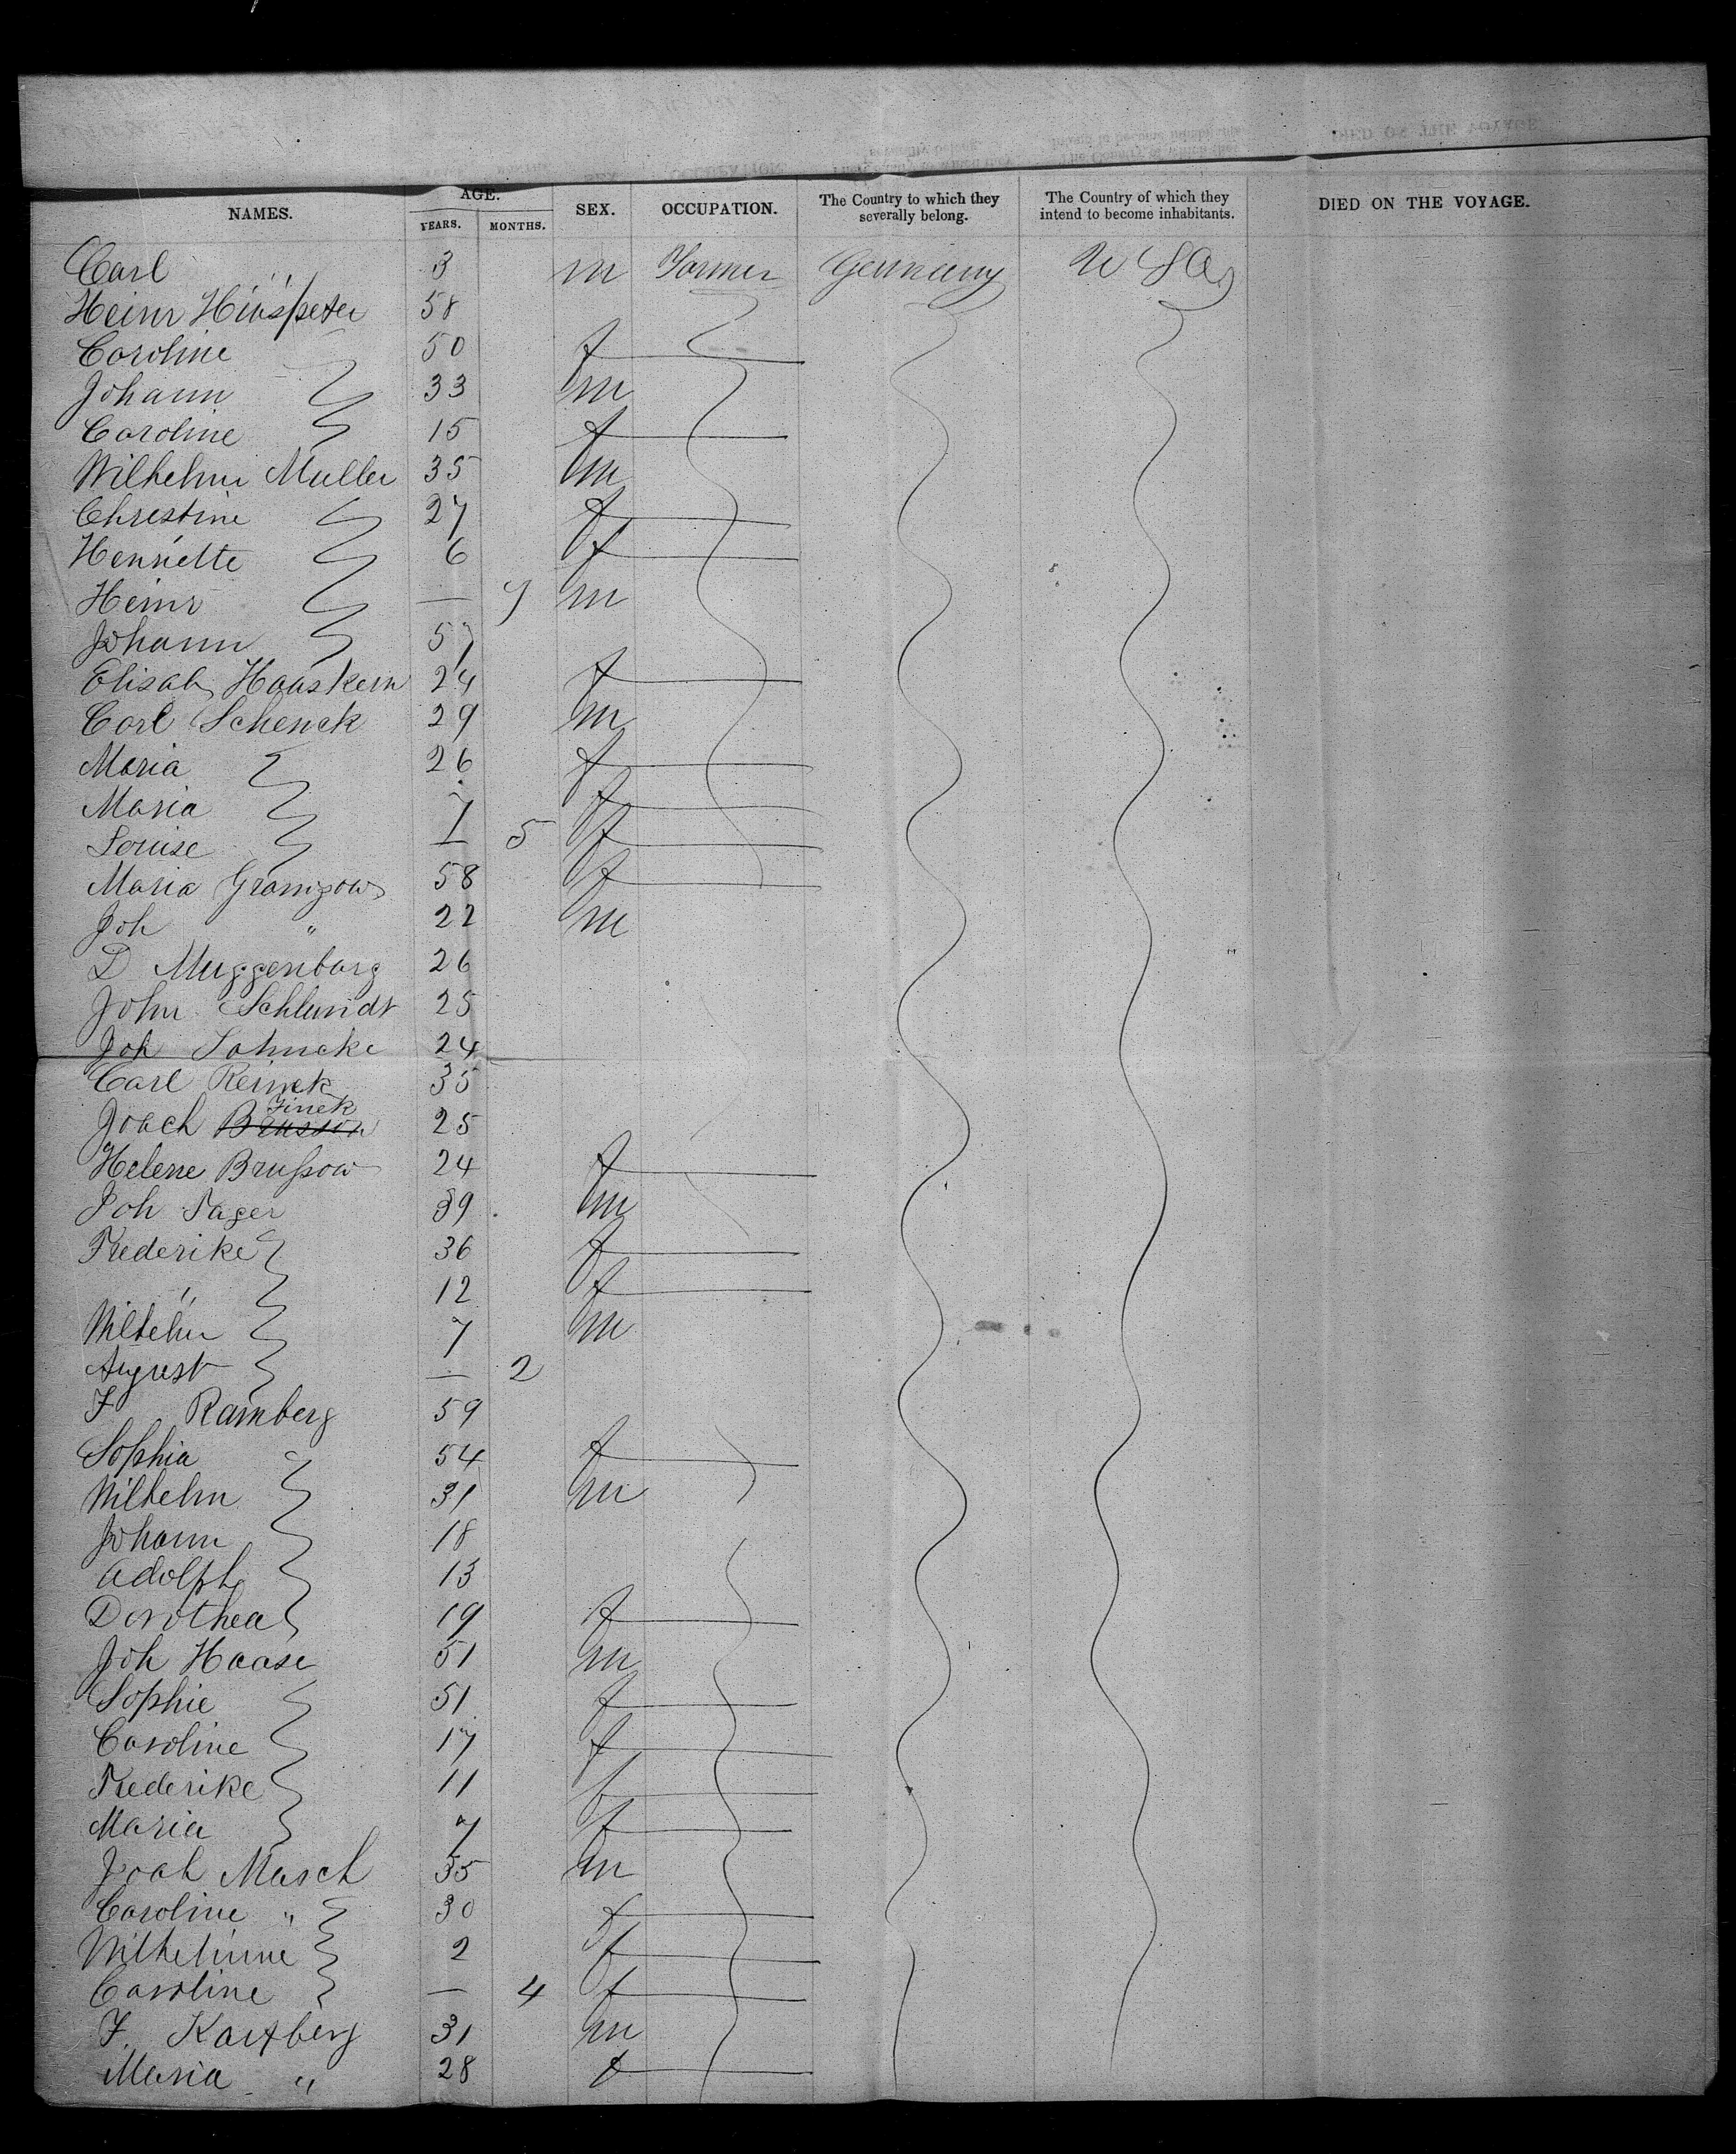 NAMES. AGE. YEARS. MONTHS. SEX. OCCUPATION. The Country to which they severally belong. The Country of which they intend to become inhabitants. DIED ON THE VOYAGE.
Carl " 3 m Farmer Germany U S A
Heinr Hinspeter 58
Caroline 50 f
Johann 33 m
Caroline 15 f
Wilhelm Muller 35 m
Christine 27 f
Henriette 6 f
Heinr — 7 m
Johann 57
Elisab Haaskern 24 f
Carl Schenck 29 m
Maria 26 f
Maria 7 f
Louise 1 5 f
Maria Gramzow 58 f
Joh " 22 m
D Muggenborg 26
John Schlundt 25
Joh 24
Carl Reinek 35
Joach Brussow Finek 25
Helene Brußow 24 f
Joh Jager 39 m
Frederike 36 f
" 12 f
Wilhelm 7 m
August — 2
F Ramberg 59
Sophia 54 f
Wilhelm 31 m
Johann 18
Adolph 13
Dorothea 19 f
Joh Haase 51 m
Sophie 51 f
Caroline 17 f
Frederike 11 f
Maria 7 f
Joah Masch 35 m
Caroline " 30 f
Wilhelmine 2 f
Caroline — 4 f
F. Kartberg 31 m
Maria " 28 f